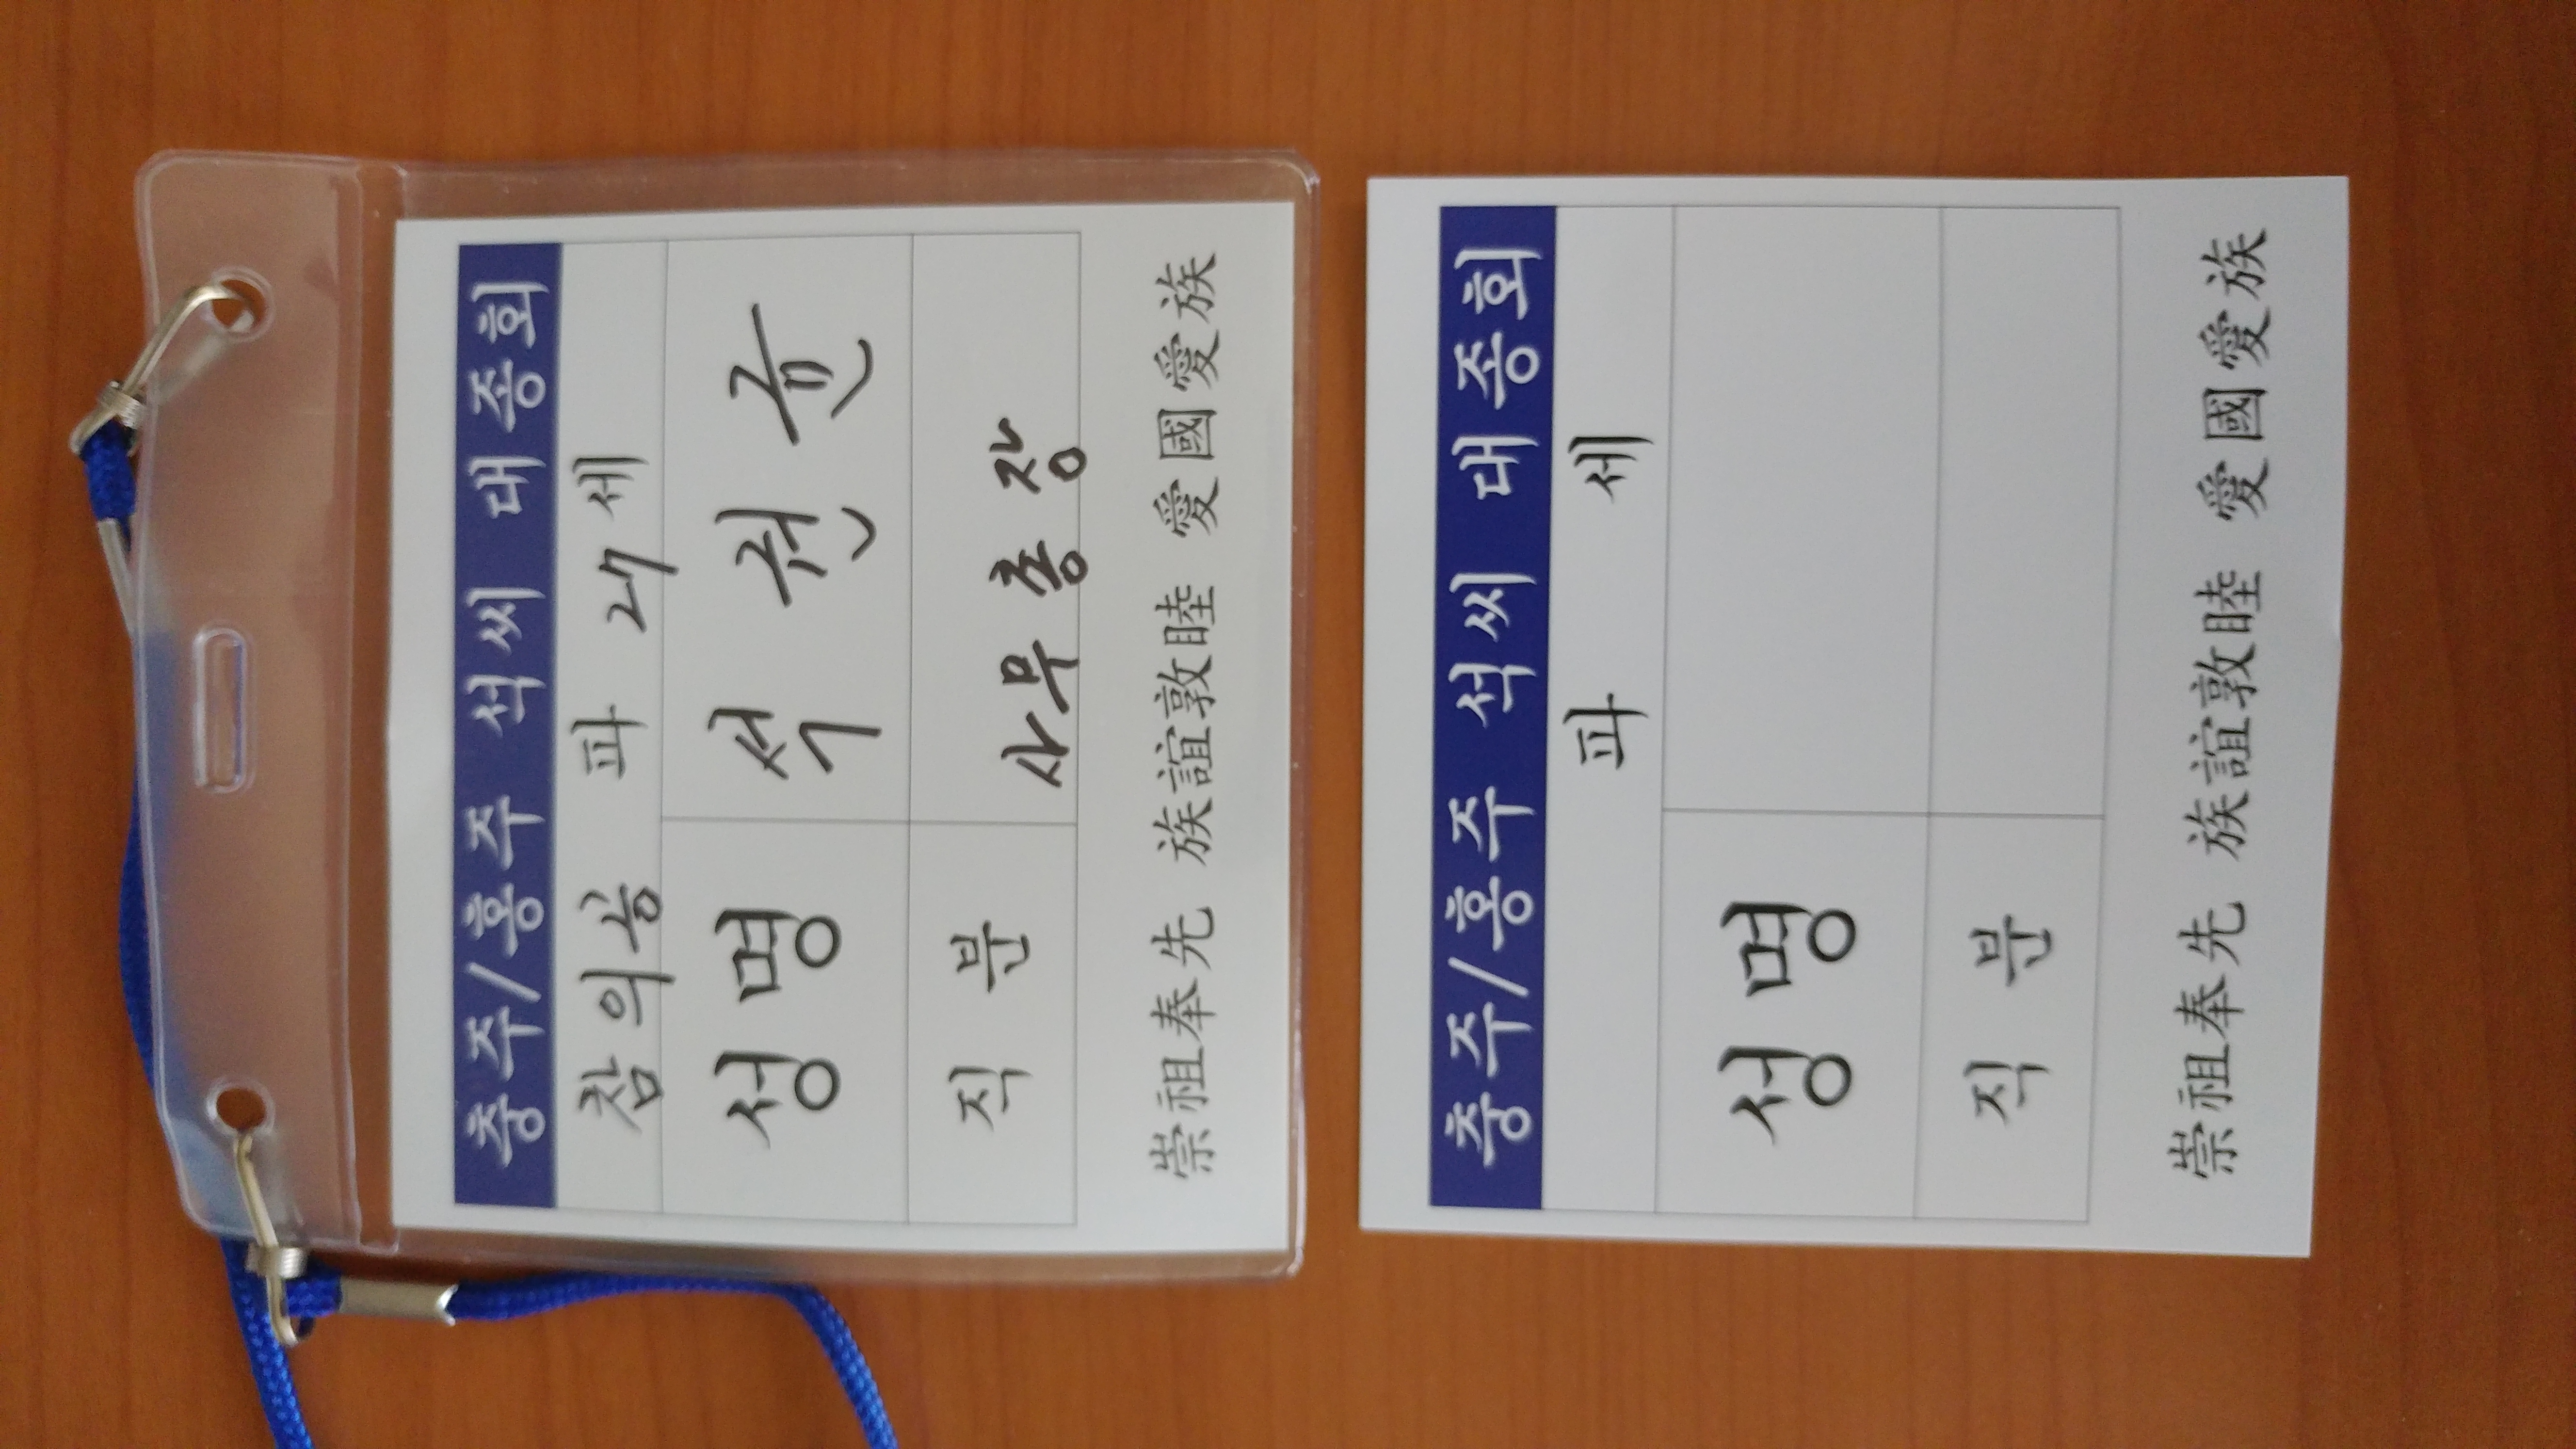 충주/홍주 석씨 대종회
참의공 파 27 세
성 명 석 권 균
직 분 사무총장
崇祖奉先 族誼敦睦 愛國愛族
충주/홍주 석씨 대종회
파 세
성 명
직 분
崇祖奉先 族誼敦睦 愛國愛族